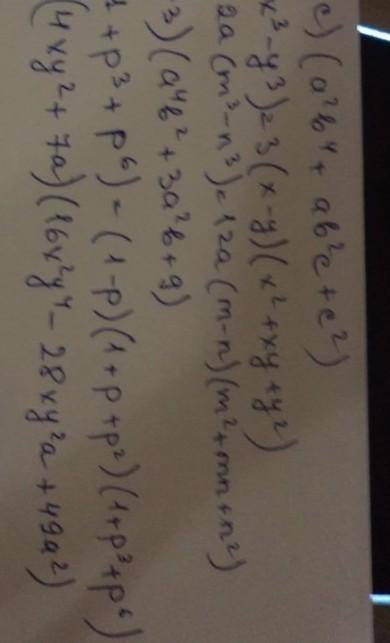 c)(a²b⁴ + ab²c + c²)
x³-y³)=3(x-y)(x²+xy+y²)
2a(m³-n³)=12a(m-n)(m²+mn+n²)
3)(a⁴b²+3a²b+9)
1+p³+p⁶)=(1-p)(1+p+p²)(1+p³+p⁶)
(4xy²+7a)(16x²y⁴-28xy²a+49a²)